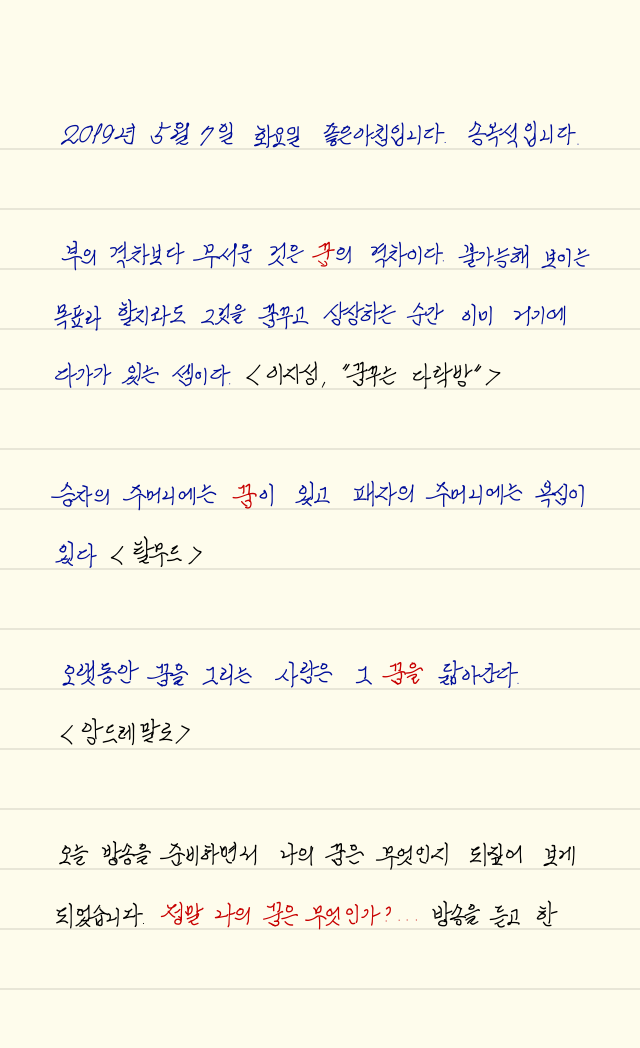 2019년 5월 7일 화요일 좋은아침입니다. 송복석입니다.
부의 격차보다 무서운 것은 꿈의 격차이다. 불가능해 보이는
목표라 할지라도 그것을 꿈꾸고 상상하는 순간 이미 거기에
다가가 있는 셈이다. <이지성, "꿈꾸는 다락방">
승자의 주머니에는 꿈이 있고 패자의 주머니에는 욕심이
있다 <탈무드>
오랫동안 꿈을 그리는 사람은 그 꿈을 닮아간다.
<앙드레 말로>
오늘 방송을 준비하면서 나의 꿈은 무엇인지 되짚어 보게
되었습니다. 정말 나의 꿈은 무엇인가?... 방송을 듣고 한